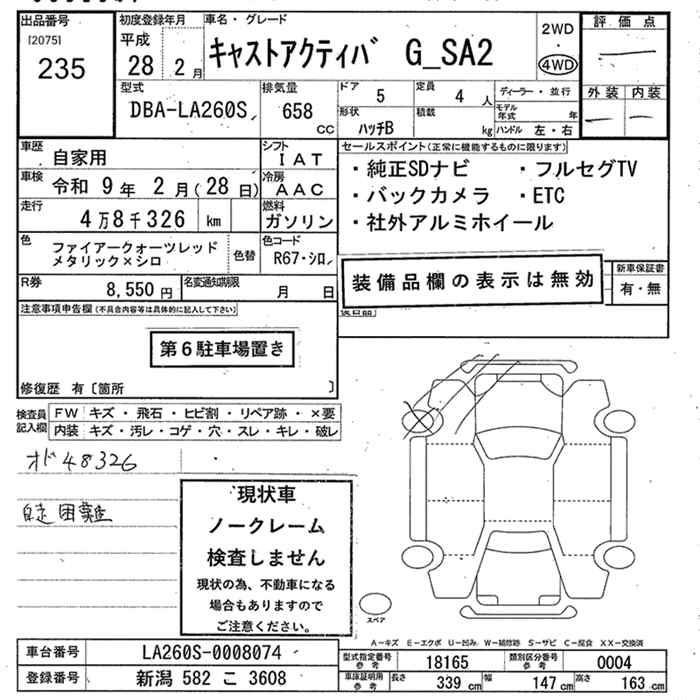 出品番号
[2075]
235
初度登録年月
平成
28 2月
車名・グレード
キャストアクティバ G_SA2
2WD
4WD
評価点
外装 内装
型式
DBA-LA260S
排気量
658
cc
ドア
5
定員
4 人
ディーラー・並行
モデル年式 年
形状
ハッチB
積載
kg
ハンドル 左・右
車歴
自家用
シフト
IAT
車検
令和 9年 2月(28日)
冷房
AAC
走行
4万8千326 km
燃料
ガソリン
色
ファイアークォーツレッド
メタリック×シロ
色替
色コード
R67・シロ
R券
8,550円
名変通知期限
月 日
セールスポイント(正常に機能するものに限ります)
・純正SDナビ ・フルセグTV
・バックカメラ ・ETC
・社外アルミホイール
装備品欄の表示は無効
新車保証書
有・無
注意事項申告欄(不具合内容等は具体的に記入して下さい)
第6駐車場置き
修復歴 有〔箇所 〕
検査員
記入欄
FW キズ・飛石・ヒビ割・リペア跡・×要
内装 キズ・汚レ・コゲ・穴・スレ・キレ・破レ
オド48326
自走困難
現状車
ノークレーム
検査しません
現状の為、不動車になる
場合もありますので
ご注意ください。
スペア
A-キズ E-エクボ U-凹み W-補修跡 S-サビ C-腐食 XX-交換済
車台番号
LA260S-0008074
登録番号
新潟 582 こ 3608
型式指定番号
参考
18165
類別区分番号
参考
0004
車庫証明用
参考
長さ
339 cm
幅
147 cm
高さ
163 cm